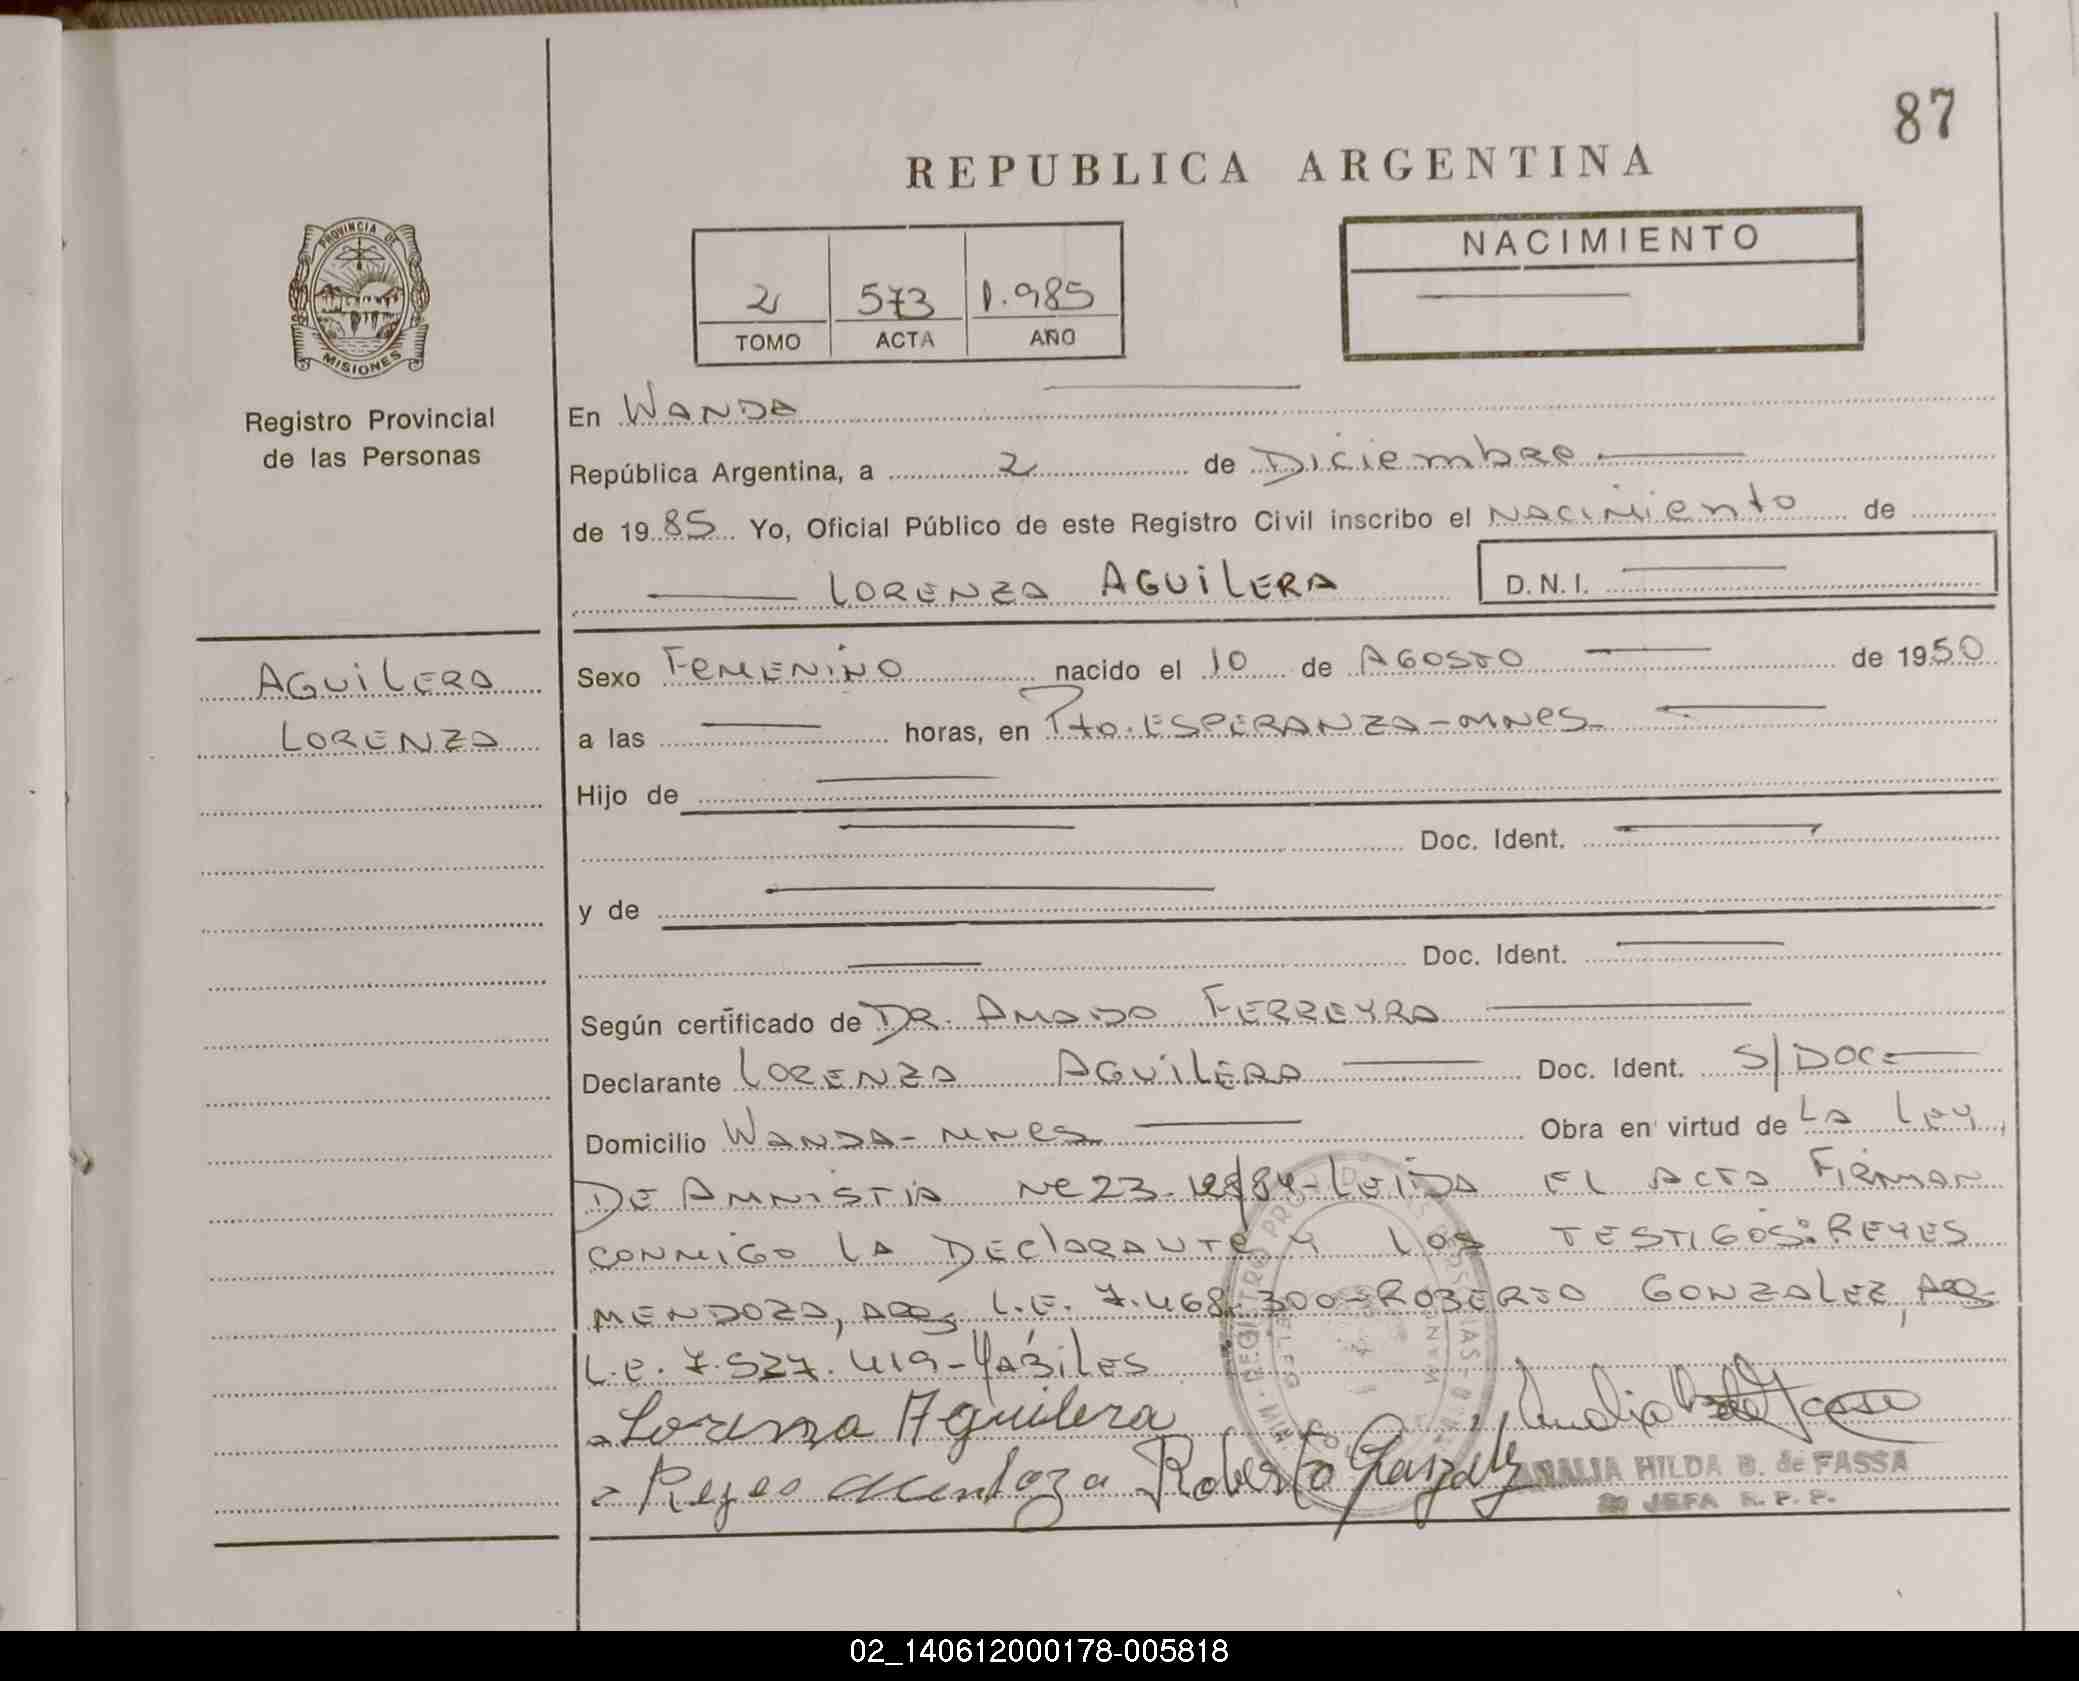 87
REPUBLICA ARGENTINA
PROVINCIA DE
MISIONES
Registro Provincial
de las Personas
2 573 1.985
TOMO ACTA AÑO
NACIMIENTO
En WANDA
República Argentina, a 2 de Diciembre
de 1985 Yo, Oficial Público de este Registro Civil inscribo el NACIMIENTO de
LORENZA AGUILERA D.N.I.
AGUILERA
LORENZA
Sexo FEMENINO nacido el 10 de AGOSTO de 1950
a las horas, en Pto. ESPERANZA-MNES-
Hijo de
Doc. Ident.
y de
Doc. Ident.
Según certificado de DR. AMADO FERREYRA
Declarante LORENZA AGUILERA Doc. Ident. S/DOC=
Domicilio WANDA-MNES Obra en virtud de LA LEY,
DE AMNISTIA 84-LEIDA EL ACTA FIRMAN
CONMIGO LA DECLARANTE Y LOS TESTIGOS: REYES
MENDOZA, ARG, L.E. 7.468.300-ROBERTO GONZALEZ, ARG
L.E. 7.527.419-HÁBILES
Lorenza Aguilera
Reyes Mendoza Roberto Gonzalez
ANALIA HILDA B. de FASSA
JEFA R. P. P.
02_140612000178-005818